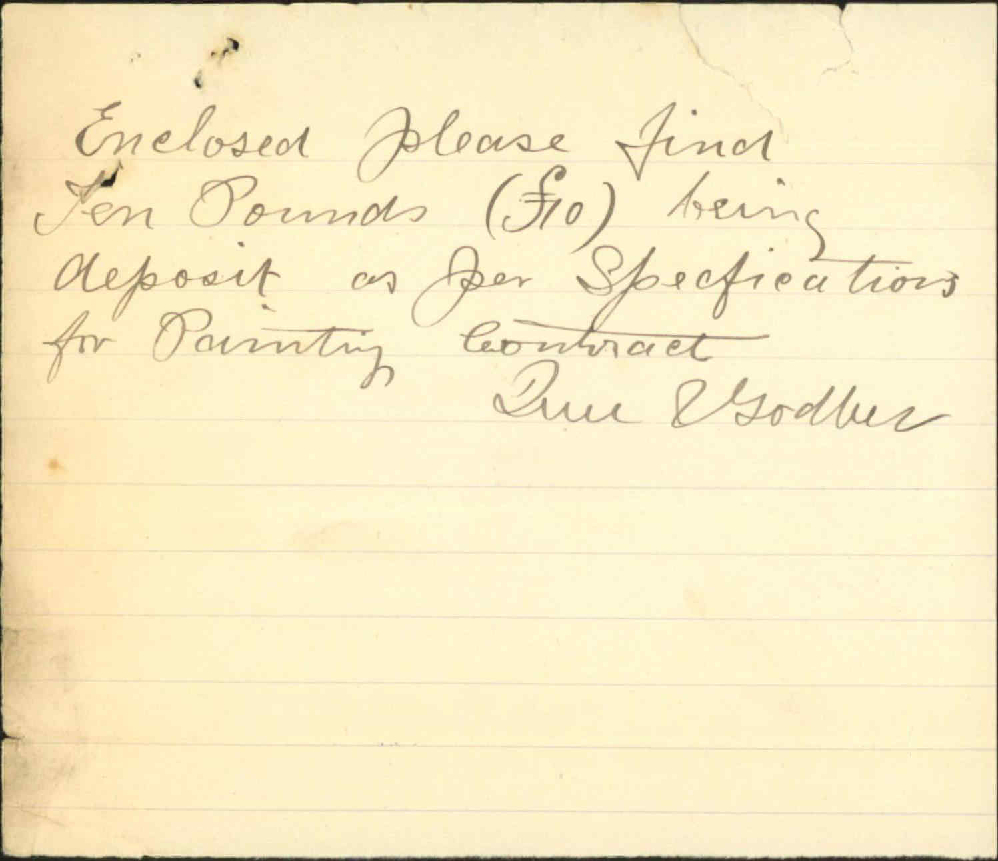 Enclosed please find
Ten Pounds (£10) being
deposit as per Specfications
for Painting Contract
Godber